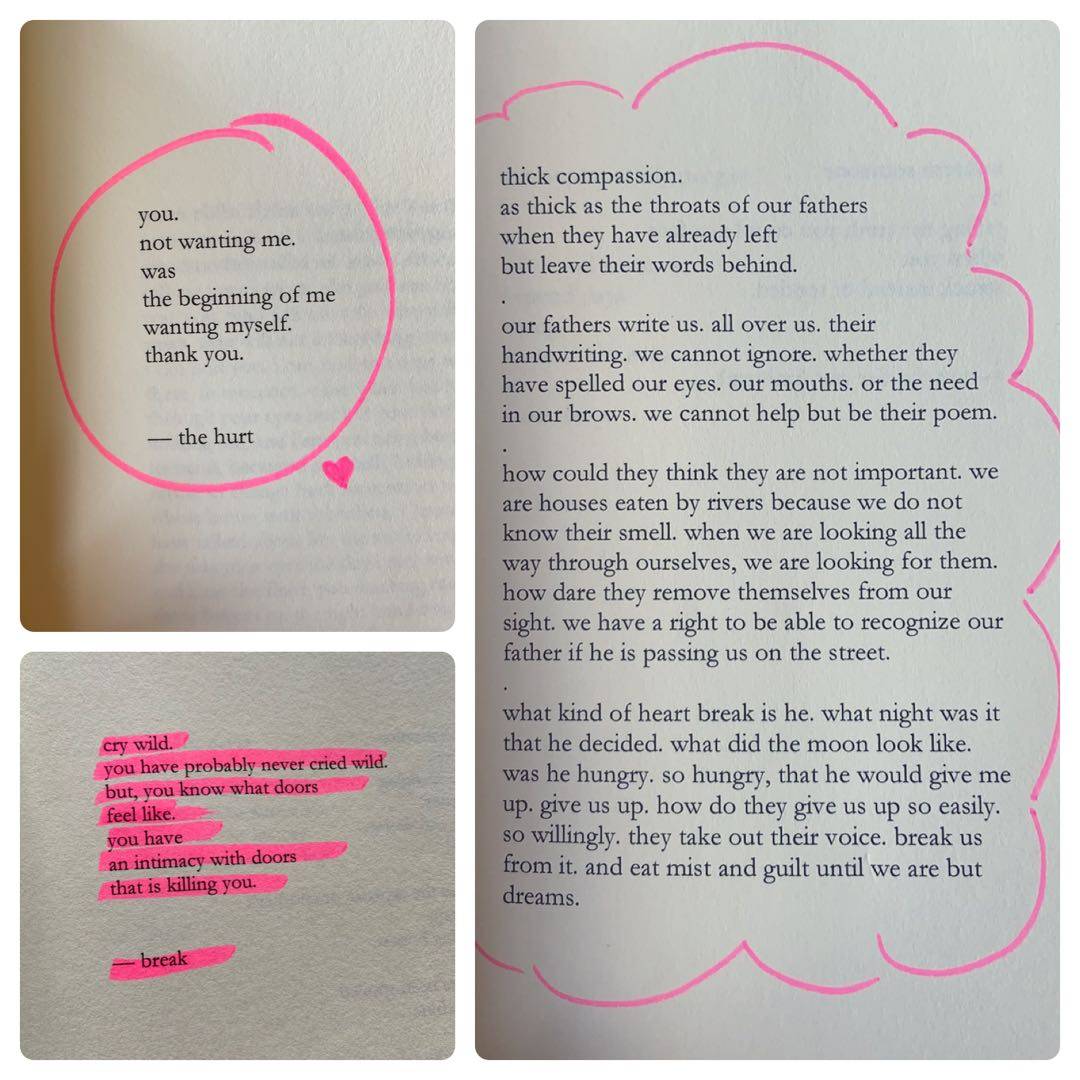 you.
not wanting me.
was
the beginning of me
wanting myself.
thank you.
— the hurt
cry wild.
you have probably never cried wild.
but, you know what doors
feel like.
you have
an intimacy with doors
that is killing you.
— break
thick compassion.
as thick as the throats of our fathers
when they have already left
but leave their words behind.
.
our fathers write us. all over us. their
handwriting. we cannot ignore. whether they
have spelled our eyes. our mouths. or the need
in our brows. we cannot help but be their poem.
.
how could they think they are not important. we
are houses eaten by rivers because we do not
know their smell. when we are looking all the
way through ourselves, we are looking for them.
how dare they remove themselves from our
sight. we have a right to be able to recognize our
father if he is passing us on the street.
.
what kind of heart break is he. what night was it
that he decided. what did the moon look like.
was he hungry. so hungry, that he would give me
up. give us up. how do they give us up so easily.
so willingly. they take out their voice. break us
from it. and eat mist and guilt until we are but
dreams.